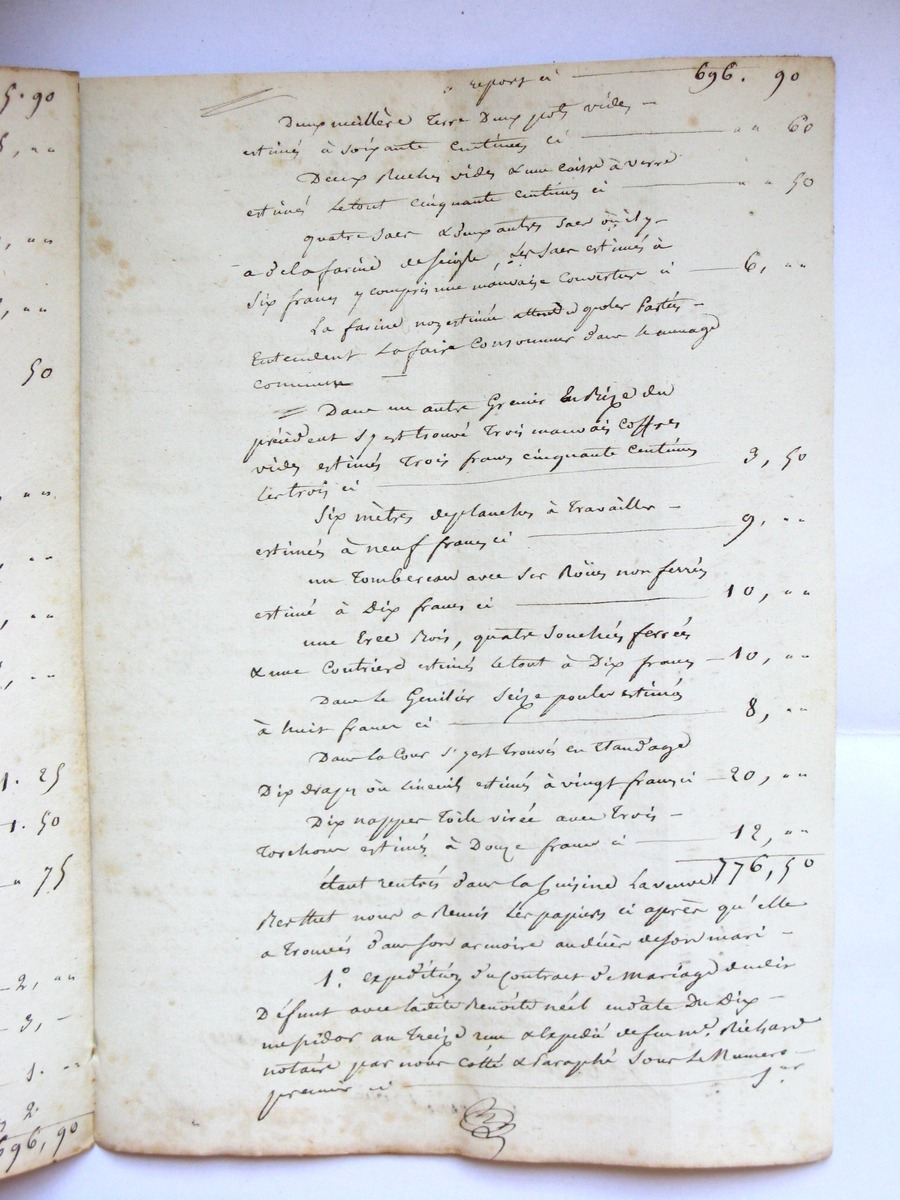 5. 90
50
1. 25
1. 50
75
2, ""
3, -
1. ""
2.
696, 90
report ci 696. 90
Deux terre Deux pots vides
estimés à soixante centimes ci " " 60
Deux Ruches vides & une caisse à verre
estimés le tout cinquante centimes ci " " 50
quatre sacs & deux autres sacs où il y
a de la farine de seigle, les sacs estimés à
six francs y compris une mauvaise couverture ci 6, ""
La farine non estimée attendu que les Parties
Entendent La faire Consommer dans le menage
commun
Dans un autre Grenier En Bize du
précédent s'y est trouvé Trois mauvais coffres
vides estimés Trois francs cinquante Centimes
les trois ci 3, 50
Six mètres de planches à Travailler
estimés à neuf francs ci 9, ""
un Tombereau avec ses Roües non ferrés
estimé à Dix francs ci 10, ""
une Bois, quatre ferrées
& une estimés le tout à Dix francs 10, ""
Dans le Genilier Seize poules estimés
à huit francs ci 8, ""
Dans la Cour s'y est Trouvés en Etandage
Dix draps ou linceuils estimés à vingt francs ci 20, ""
Dix nappes Toile virée avec Trois
Torchons estimés à Douze francs ci 12, ""
776, 50
étant rentrés dans la Cuisine La veuve
Berthet nous a Remis Les papiers ci après qu'elle
a Trouvés dans son armoire au décès de son mari
1.° expédition du Contract de Mariage dudit
Défunt avec ladite Benoîte en date Du Dix
messidor an Treize & Expédié de feu m.e Richard
notaire par nous Cotté & Paraphé Sous Le Numero
premier ci 1.er